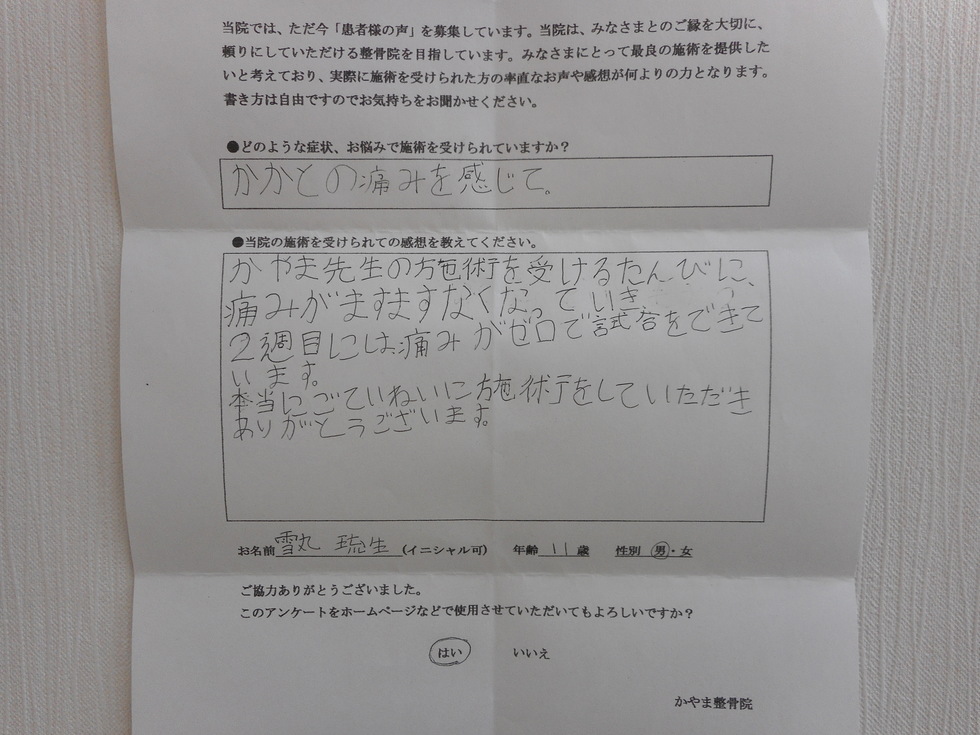 当院では、ただ今「患者様の声」を募集しています。当院は、みなさまとのご縁を大切に、
頼りにしていただける整骨院を目指しています。みなさまにとって最良の施術を提供した
いと考えており、実際に施術を受けられた方の率直なお声や感想が何よりの力となります。
書き方は自由ですのでお気持ちをお聞かせください。
●どのような症状、お悩みで施術を受けられていますか?
かかとの痛みを感じて。
●当院の施術を受けられての感想を教えてください。
かやま先生の施術を受けるたんびに、
痛みがますますなくなっていき
2週目には痛みがゼロで試合をできて
います。
本当にごていねいに施術をしていただき
ありがとうございます。
お名前 雪丸 琉生 (イニシャル可) 年齢 11 歳 性別 男・女
ご協力ありがとうございました。
このアンケートをホームページなどで使用させていただいてもよろしいですか?
はい いいえ
かやま整骨院